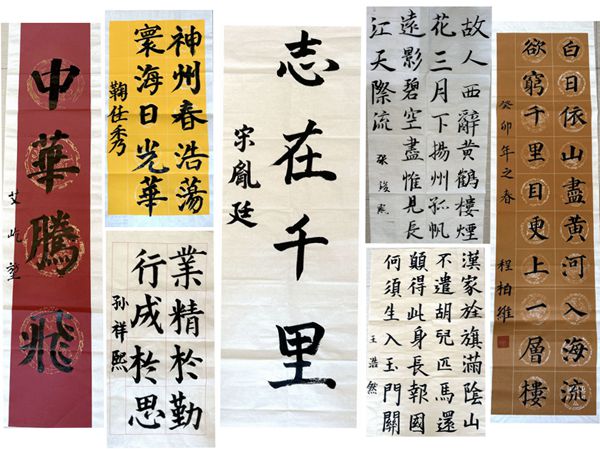 中華騰飛
艾屹
神州春浩蕩
寰海日光華
鞠仕秀
業精於勤
行成於思
孙祥熙
志在千里
宗胤廷
故人西辭黄鶴樓煙
花三月下揚州孤帆
遠影碧空盡惟見長
江天際流
漢家旌旗滿陰山
不遣胡兒匹馬還
顛得此身長報國
何須生入玉門關
王浩然
白日依山盡黄河入海流
欲窮千里目更上一層樓
癸卯年之春
程柏維